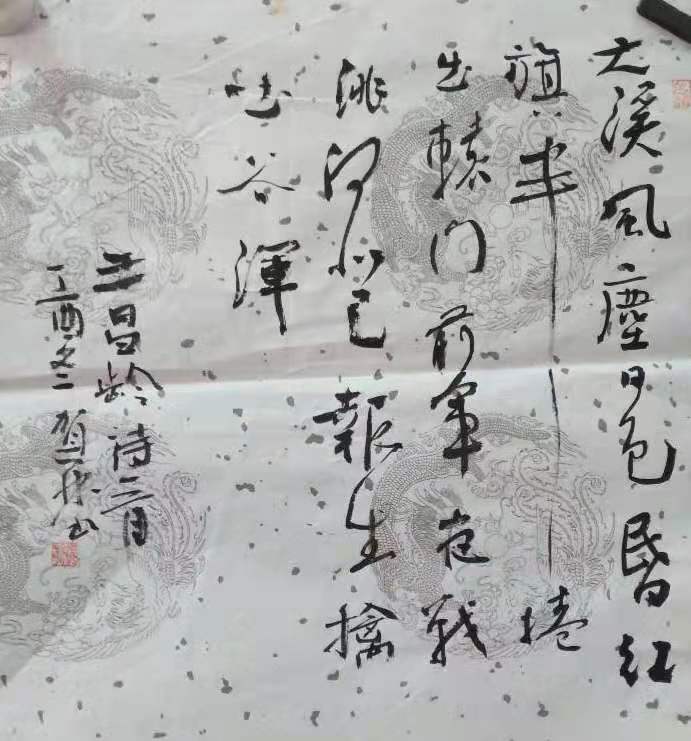 大漠风尘日色昏红
旗半捲
出辕门前军夜战
洮河北已報生擒
吐谷渾
王昌龄诗一首
丁酉冬